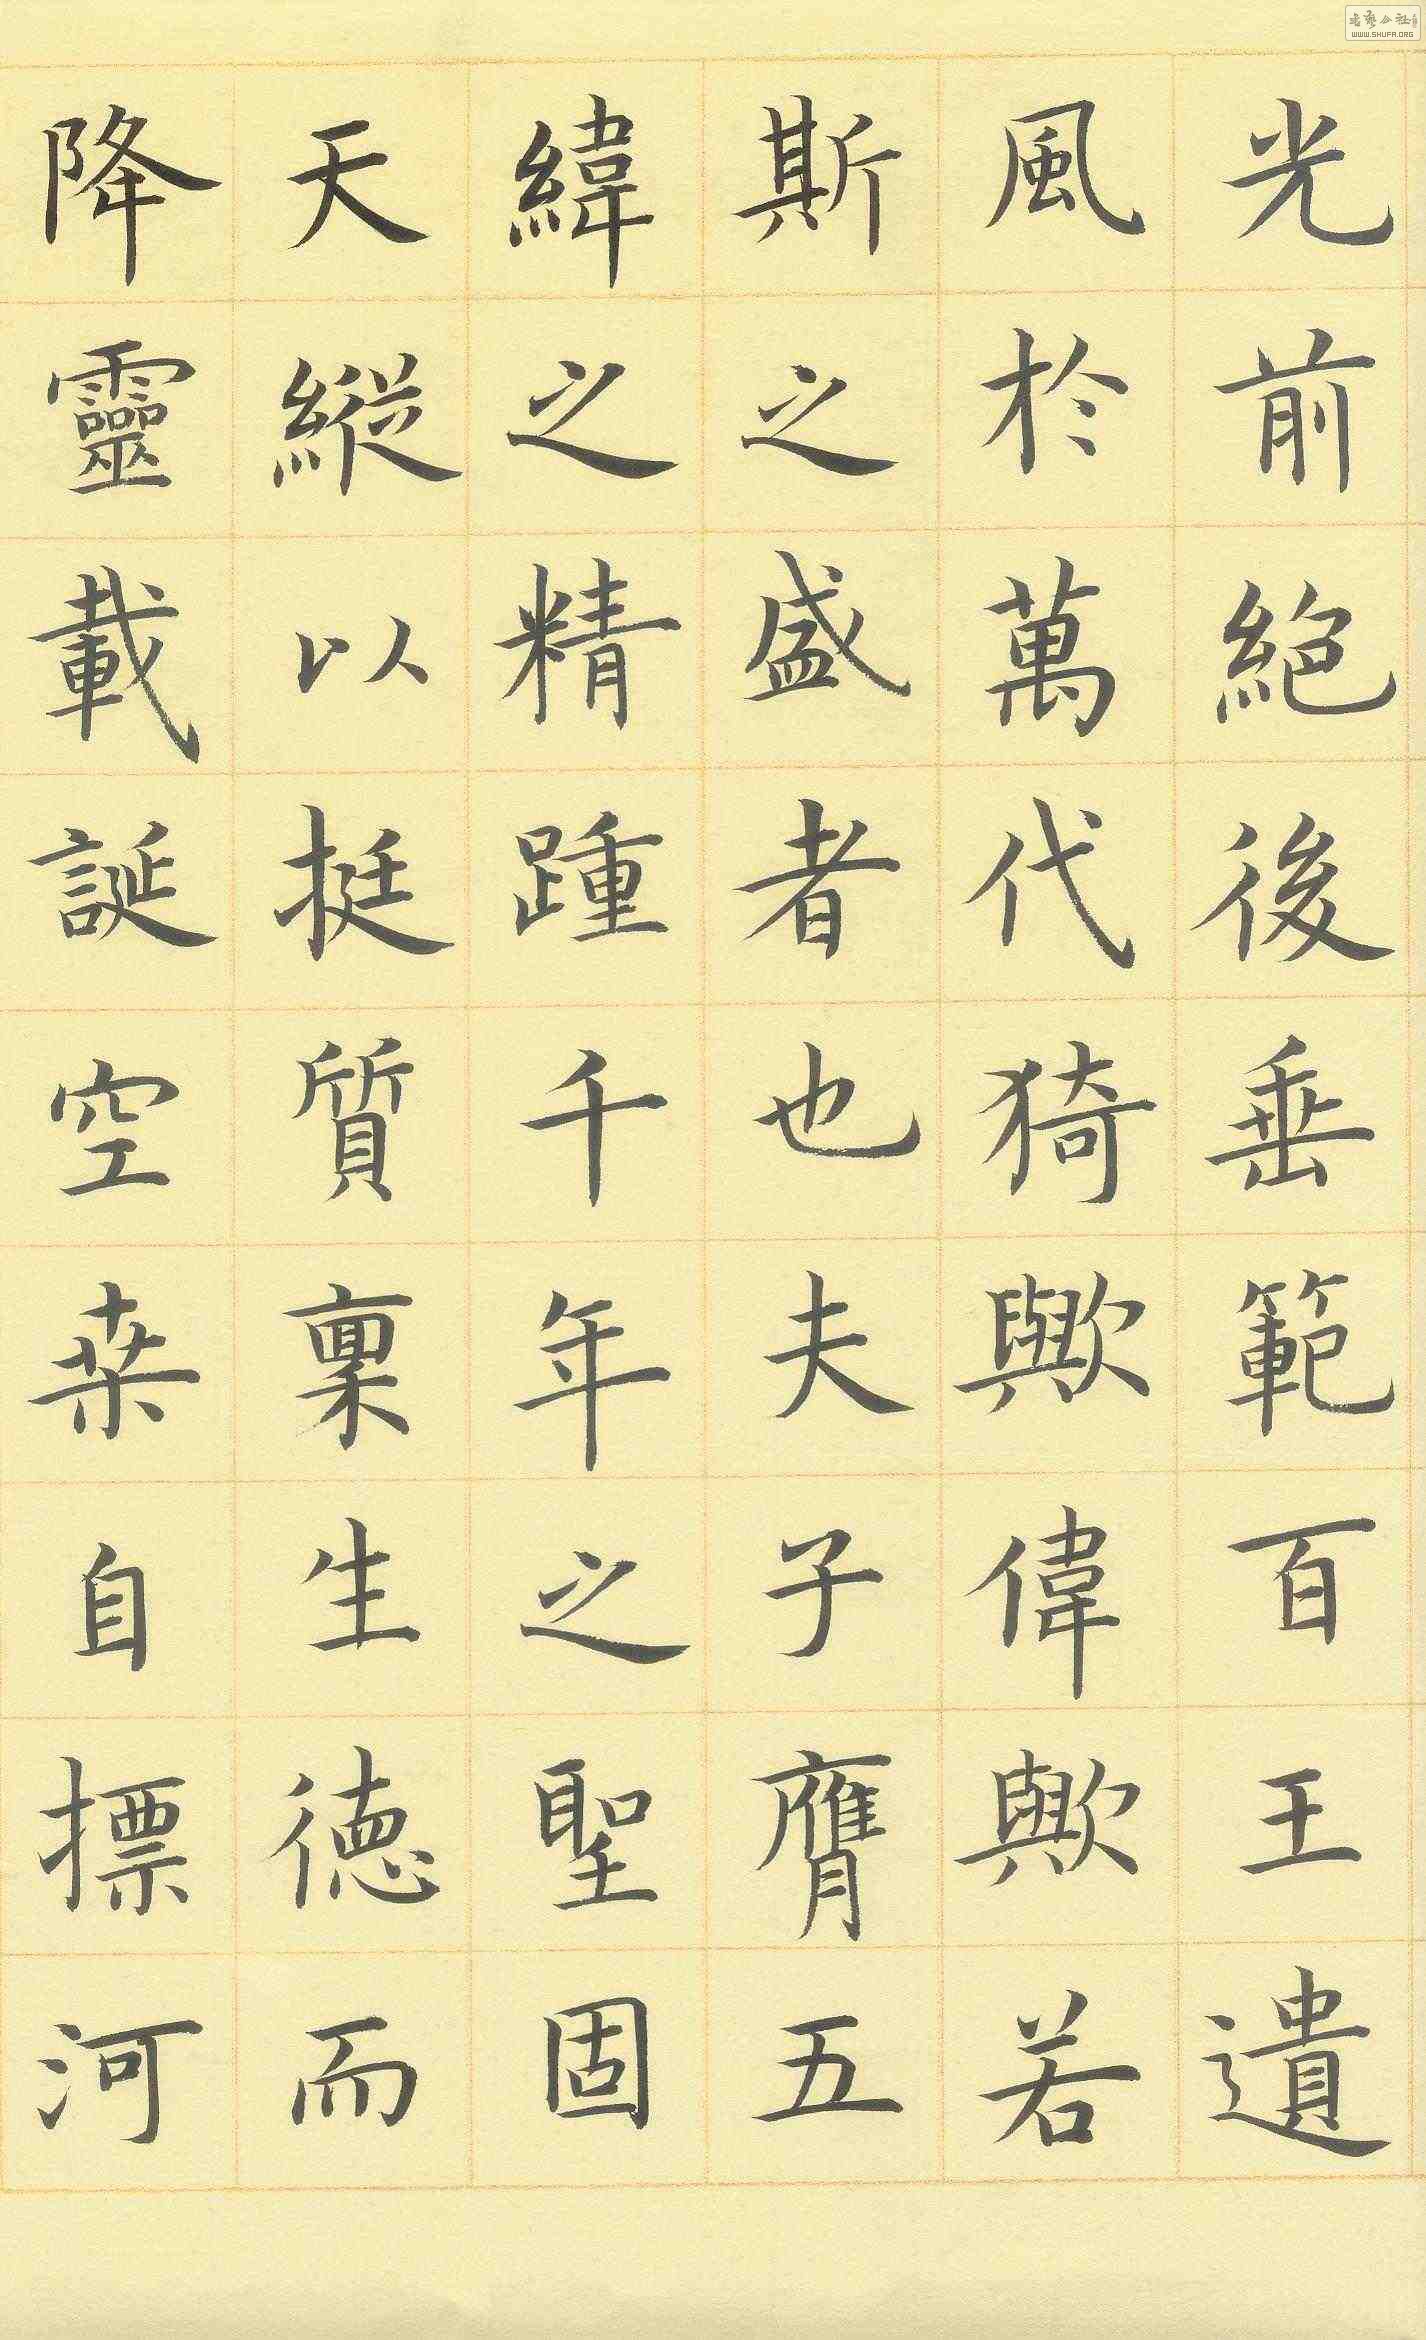 光前絕後垂範百王遺
風於萬代猗歟偉歟若
斯之盛者也夫子膺五
緯之精踵千年之聖固
天縱以挺質稟生德而
降靈載誕空桑自標河
WWW.SHUFA.ORG